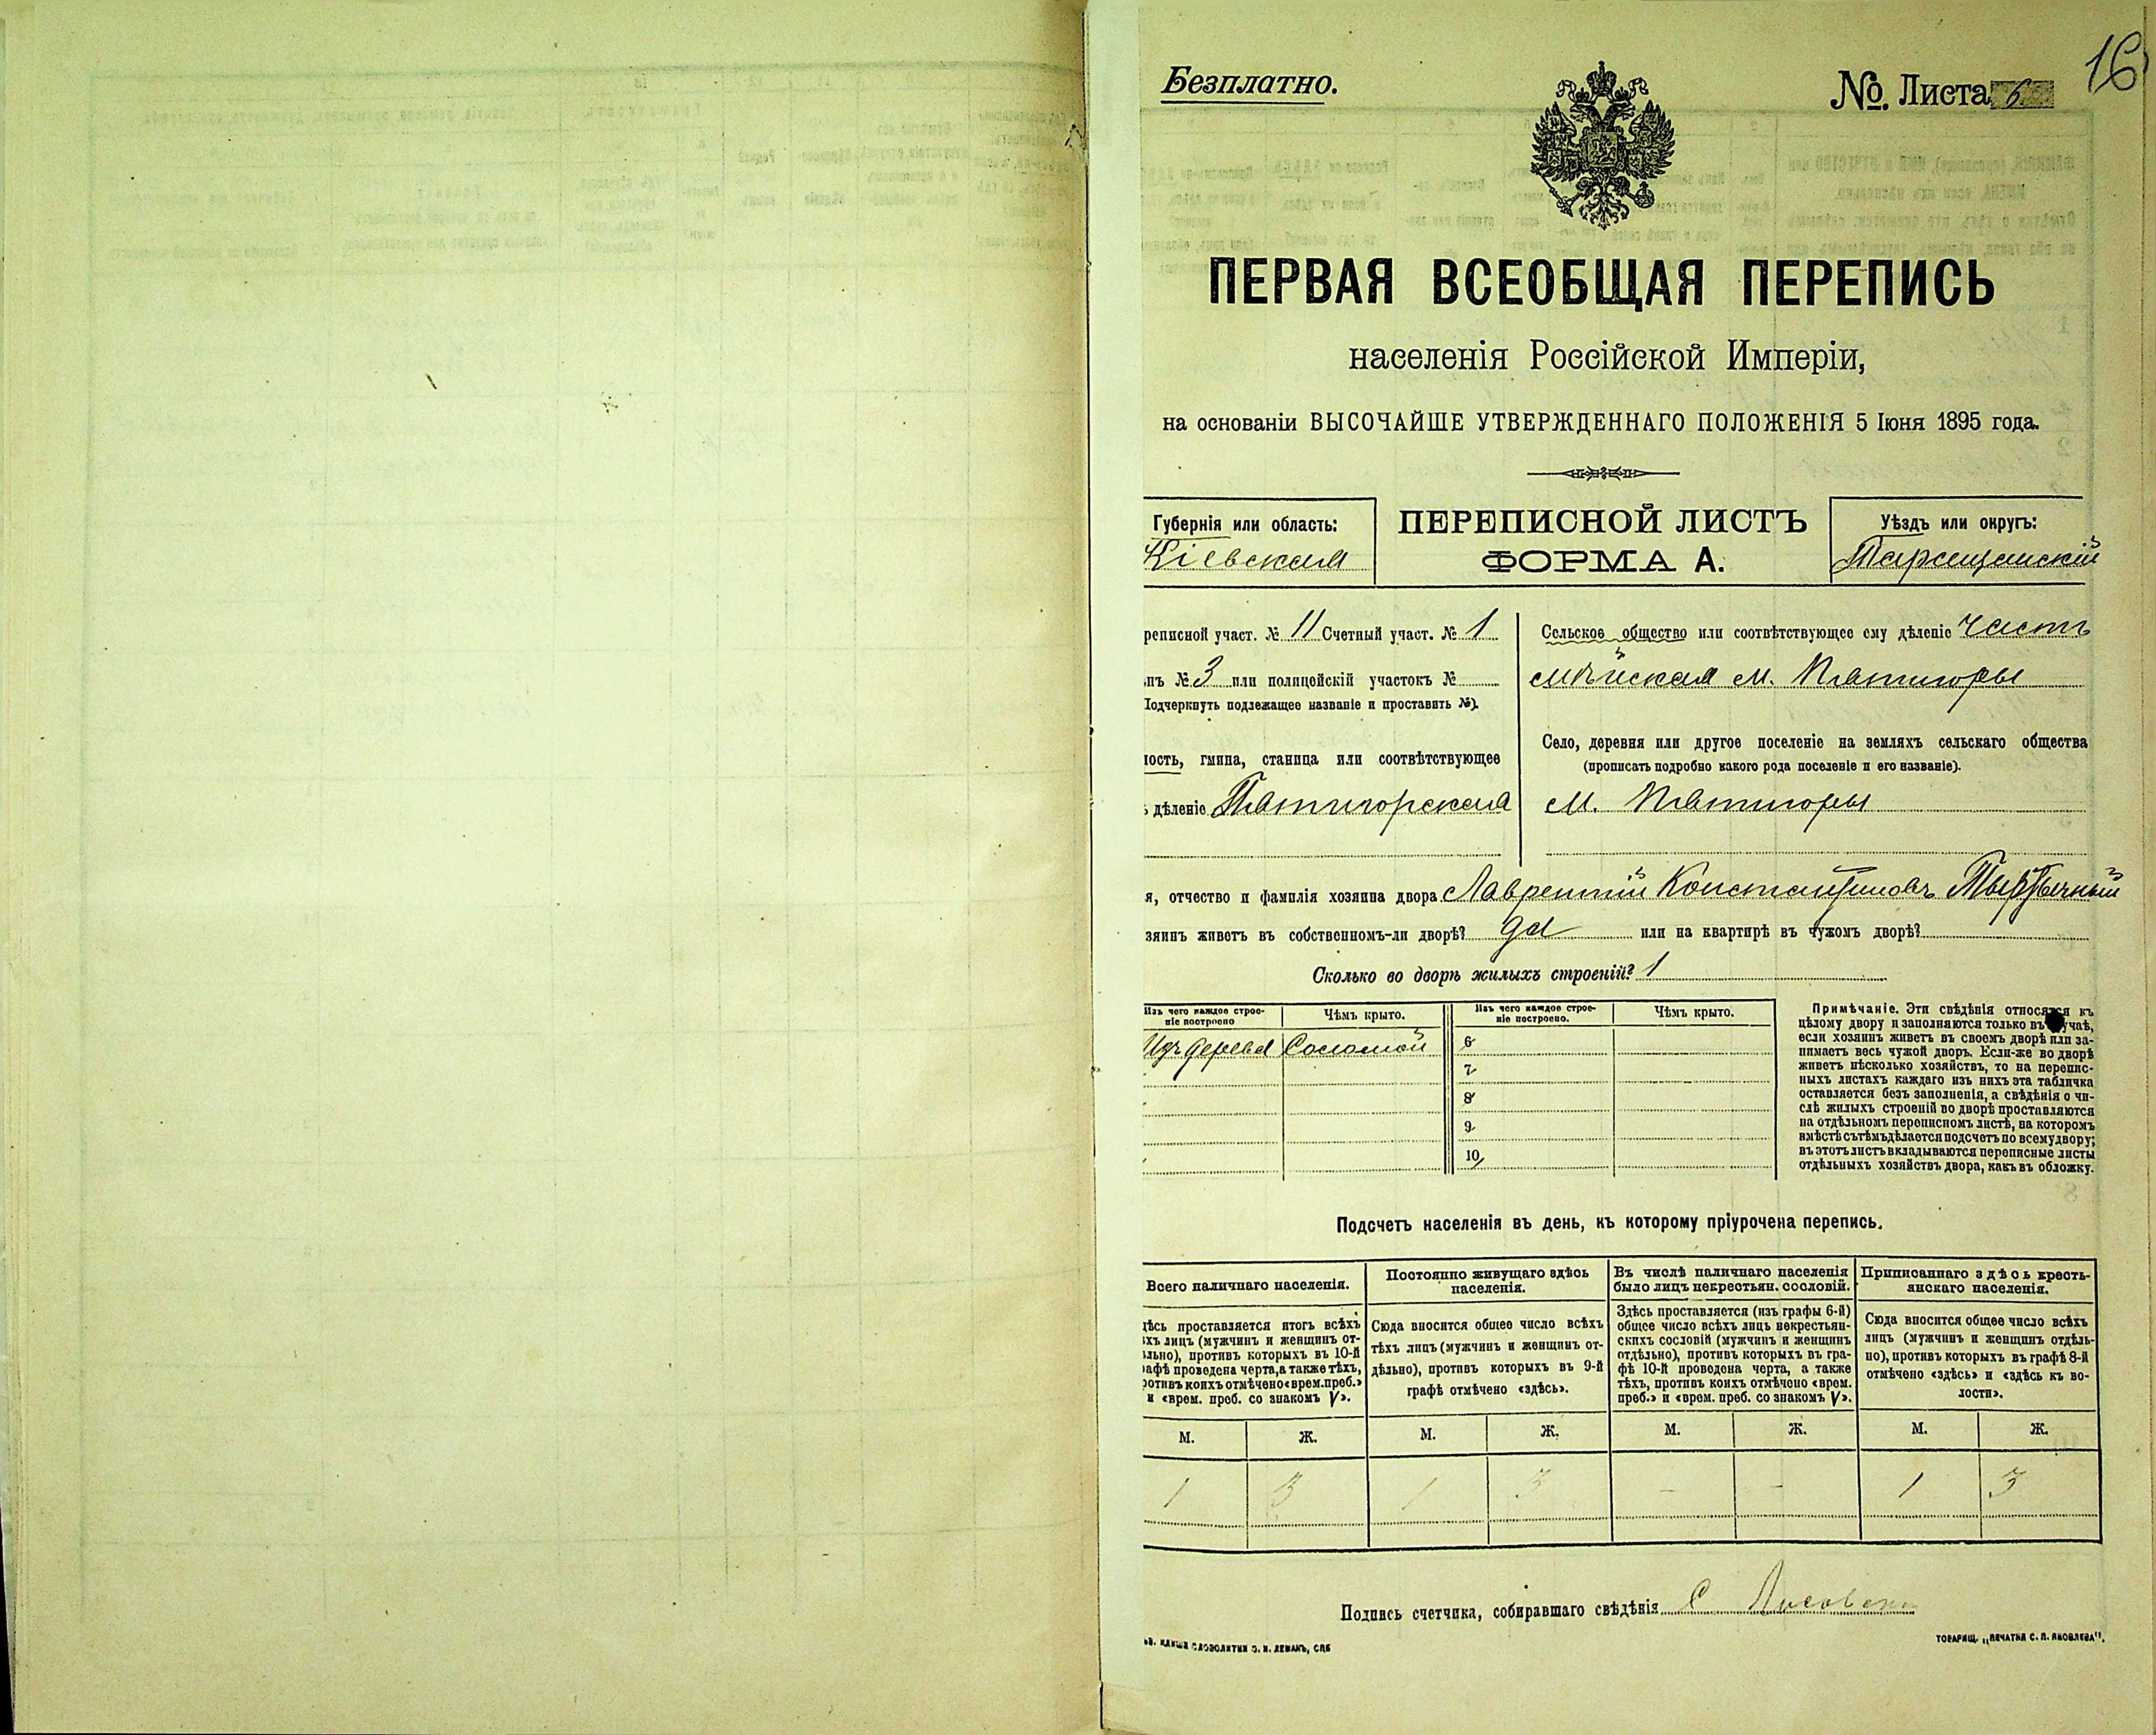 Безплатно.
№ Листа 6
16
ПЕРВАЯ ВСЕОБЩАЯ ПЕРЕПИСЬ
населенія Россійской Имперіи,
на основаніи ВЫСОЧАЙШЕ УТВЕРЖДЕННАГО ПОЛОЖЕНІЯ 5 Іюня 1895 года.
Губернія или область:
Кіевская
ПЕРЕПИСНОЙ ЛИСТЪ
ФОРМА А.
Уѣздъ или округъ:
Таращанскій
реписной участ. № 11 Счетный участ. № 1
нъ № 3 или полицейскій участокъ №
Подчеркнуть подлежащее названіе и проставить №).
ность, гмина, станица или соотвѣтствующее
дѣленіе Пятигорская
Сельское общество или соотвѣтствующее ему дѣленіе часть
м. Пятигоры
Село, деревня или другое поселеніе на земляхъ сельскаго общества
(прописать подробно какого рода поселеніе и его названіе).
м. Пятигоры
я, отчество и фамилія хозяина двора Лаврентій Константиновъ
зяинъ живетъ въ собственномъ-ли дворѣ? да или на квартирѣ въ чужомъ дворѣ?
Сколько во дворѣ жилыхъ строеній? 1
Изъ чего каждое строе-
ніе построено
Чѣмъ крыто.
Изъ чего каждое строе-
ніе построено.
Чѣмъ крыто.
Изъ дерева Соломой
6
7
8
9
10
Примѣчаніе. Эти свѣдѣнія относятся къ
цѣлому двору и заполняются только въ случаѣ,
если хозяинъ живетъ въ своемъ дворѣ или за-
нимаетъ весь чужой дворъ. Если-же во дворѣ
живетъ нѣсколько хозяйствъ, то на перепис-
ныхъ листахъ каждаго изъ нихъ эта табличка
оставляется безъ заполненія, а свѣдѣнія о чи-
слѣ жилыхъ строеній во дворѣ проставляются
на отдѣльномъ переписномъ листѣ, на которомъ
вмѣстѣ съ тѣмъ дѣлается подсчетъ по всему двору;
въ этотъ листъ вкладываются переписные листы
отдѣльныхъ хозяйствъ двора, какъ въ обложку.
Подсчетъ населенія въ день, къ которому пріурочена перепись.
Всего наличнаго населенія.
дѣсь проставляется итогъ всѣхъ
хъ лицъ (мужчинъ и женщинъ от-
льно), противъ которыхъ въ 10-й
афѣ проведена черта, а также тѣхъ,
ротивъ коихъ отмѣчено «врем. преб.»
и «врем. преб. со знакомъ V».
Постоянно живущаго здѣсь
населенія.
Сюда вносится общее число всѣхъ
тѣхъ лицъ (мужчинъ и женщинъ от-
дѣльно), противъ которыхъ въ 9-й
графѣ отмѣчено «здѣсь».
Въ числѣ наличнаго населенія
было лицъ некрестьян. сословій.
Здѣсь проставляется (изъ графы 6-й)
общее число всѣхъ лицъ некрестьян-
скихъ сословій (мужчинъ и женщинъ
отдѣльно), противъ которыхъ въ гра-
фѣ 10-й проведена черта, а также
тѣхъ, противъ коихъ отмѣчено «врем.
преб.» и «врем. преб. со знакомъ V».
Приписаннаго здѣсь кресть-
янскаго населенія.
Сюда вносится общее число всѣхъ
лицъ (мужчинъ и женщинъ отдѣль-
но), противъ которыхъ въ графѣ 8-й
отмѣчено «здѣсь» и «здѣсь къ во-
лости».
М. Ж. М. Ж. М. Ж. М. Ж.
1 3 1 3 - - 1 3
Подпись счетчика, собиравшаго свѣдѣнія С
СЛОВОЛИТНИ О. И. ЛЕМАНЪ, СПБ
ТОВАРИЩ. „ПЕЧАТНЯ С. П. ЯКОВЛЕВА".